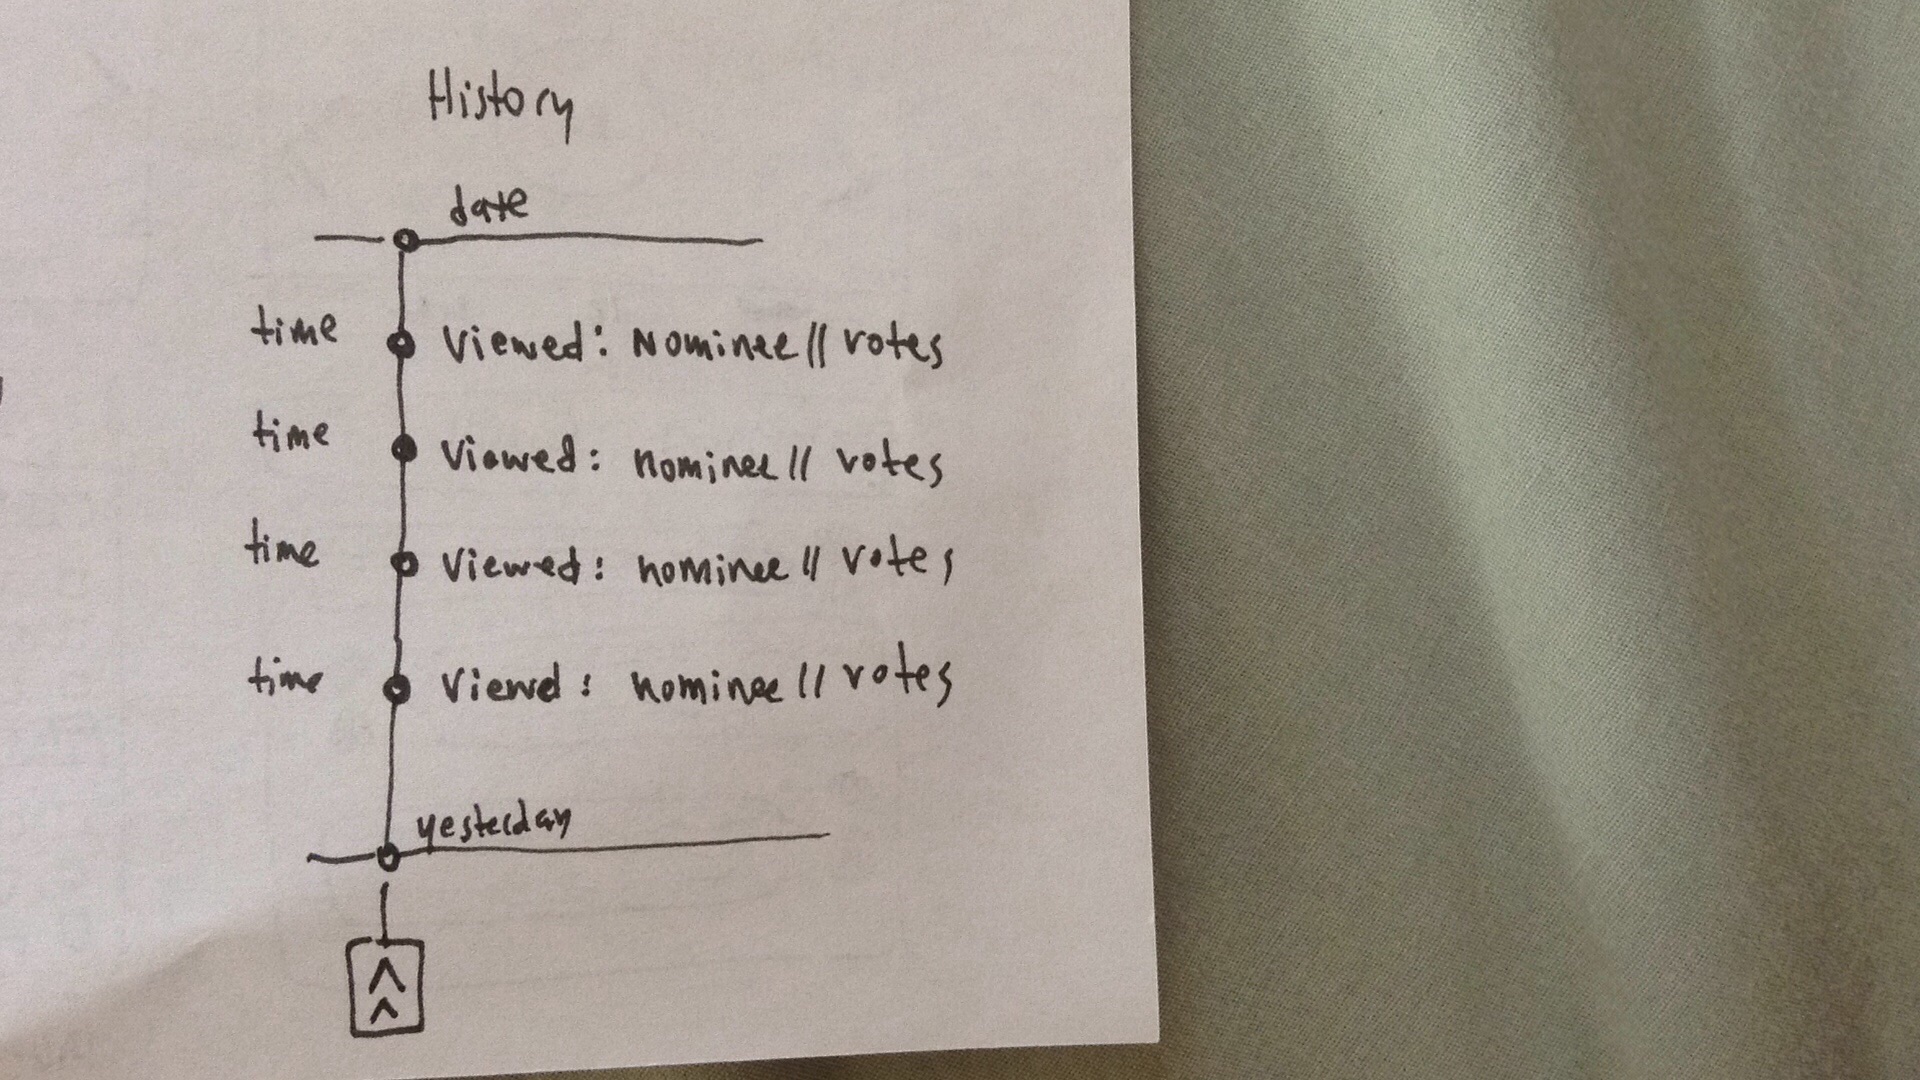 History
date
time Viewed: Nominee // votes
time Viewed: nominee // votes
time Viewed: nominee // votes
time Viewd: nominee // votes
yesterday